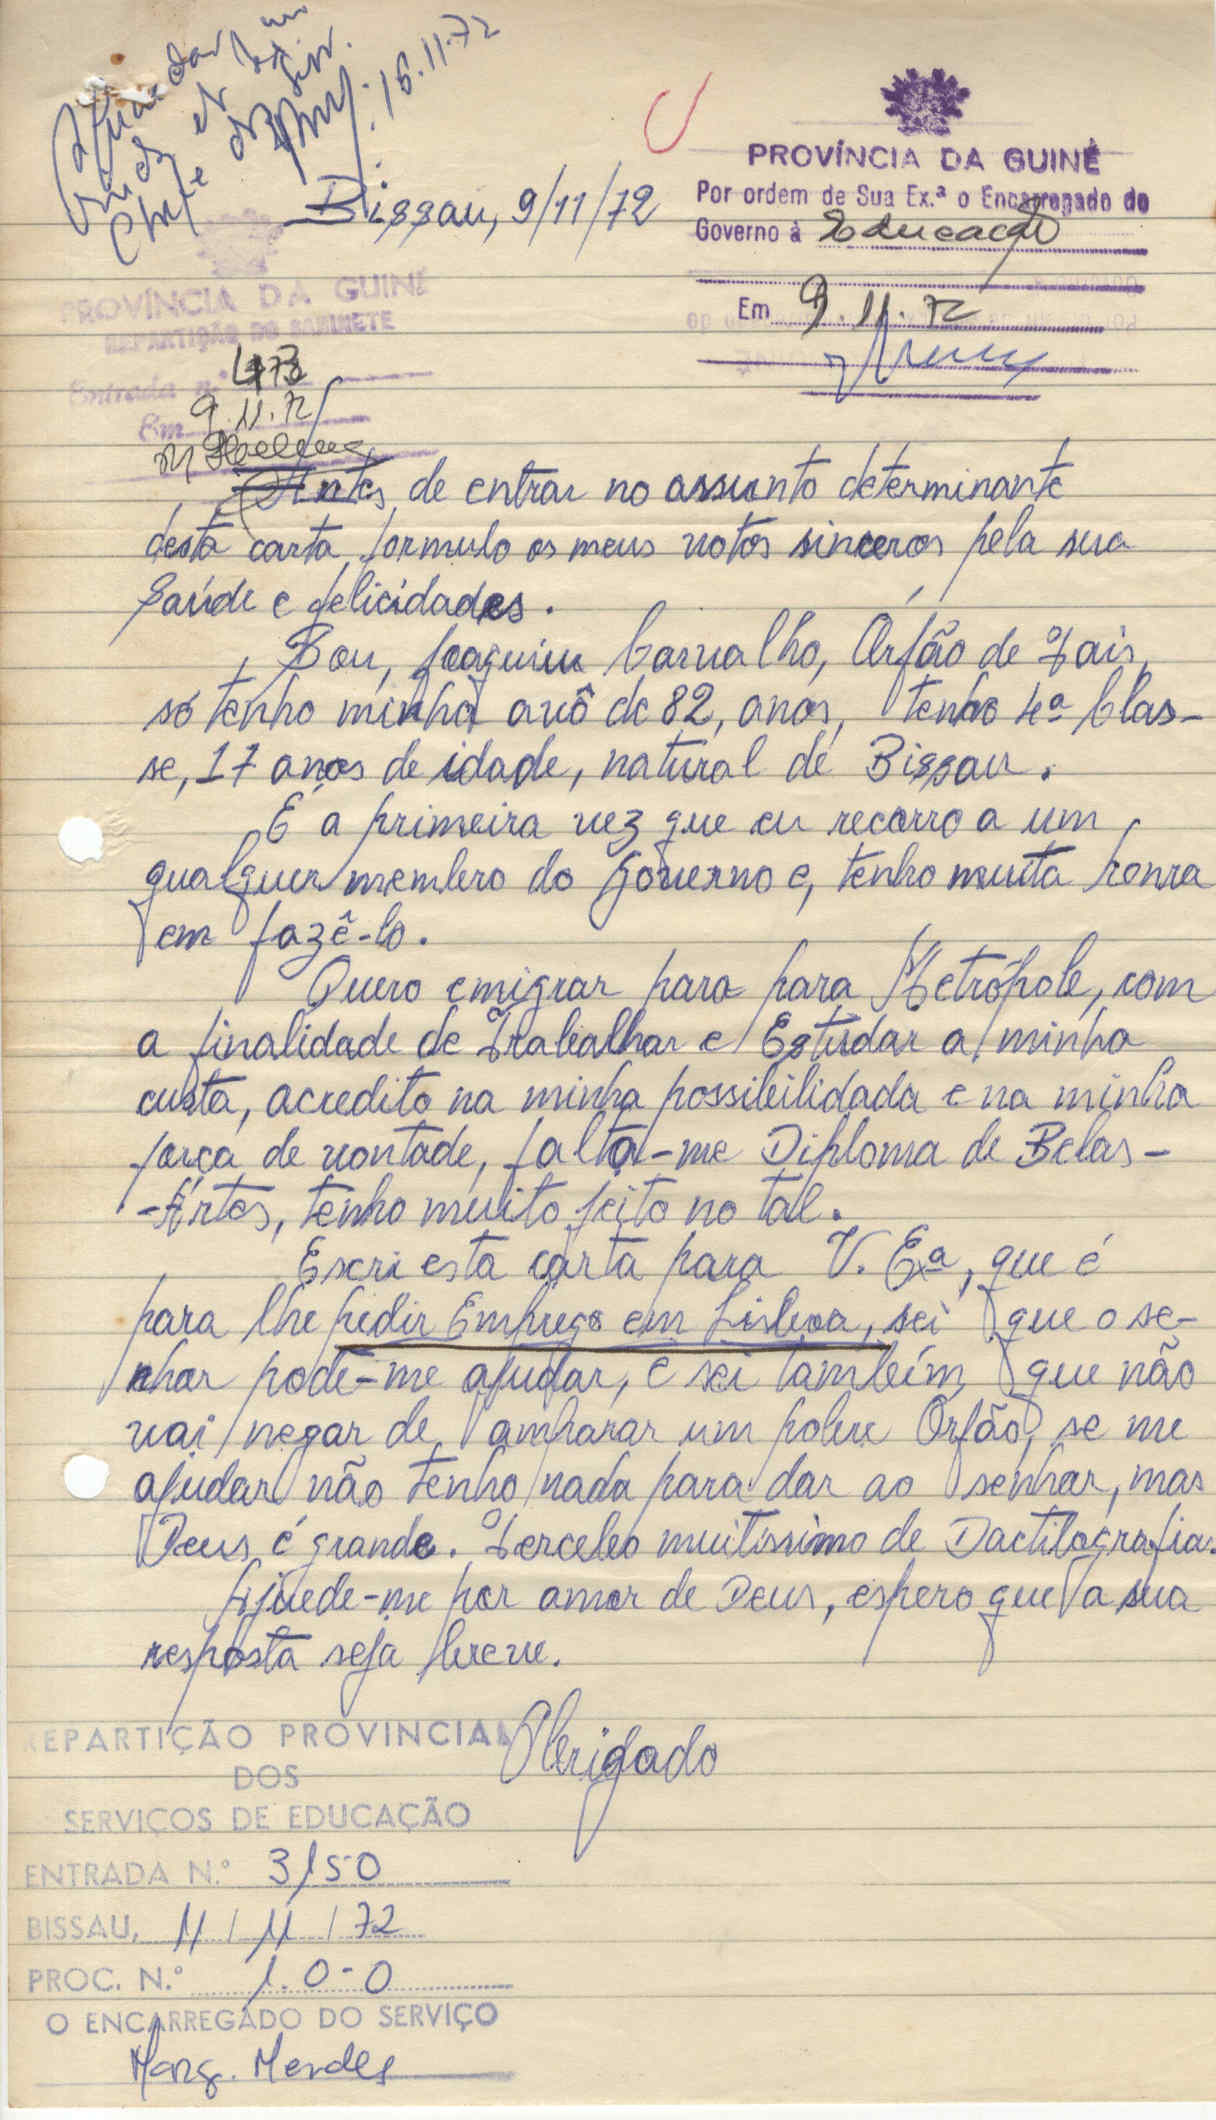 16.11.72
PROVÍNCIA DA GUINÉ
Por ordem de Sua Ex.ª o Encarregado do
Governo à Educação
Em 9.11.72
Bissau, 9/11/72
PROVÍNCIA DA GUINÉ
REPARTIÇÃO DO GABINETE
Entrada n.º 473
Em 9.11.72
Antes de entrar no assunto determinante
desta carta formulo os meus votos sinceros pela sua
saúde e felicidades.
Sou, Joaquim Carvalho, Orfão de Pais,
só tenho minha avô de 82, anos, tenho 4ª Clas-
se, 17 anos de idade, natural de Bissau.
É a primeira vez que eu recorro a um
qualquer membro do Governo e, tenho muita honra
em fazê-lo.
Quero emigrar para para Metrópole, com
a finalidade de Trabalhar e Estudar a minha
custa, acredito na minha possibilidada e na minha
força de vontade, falta-me Diploma de Belas-
-Artes, tenho muito jeito no tal.
Escri esta carta para V. Exª, que é
para lhe pedir Emprego em Lisboa, sei que o se-
nhor pode-me ajudar, e sei também que não
vai negar de amparar um pobre Orfão, se me
ajudar não tenho nada para dar ao senhor, mas
Deus é grande. Percebo muitissimo de Dactilografia.
Ajuede-me por amor de Deus, espero que a sua
resposta seja breve.
Obrigado
REPARTIÇÃO PROVINCIAL
DOS
SERVIÇOS DE EDUCAÇÃO
ENTRADA N.º 3150
BISSAU, 11/11/72
PROC. N.º 1.0-0
O ENCARREGADO DO SERVIÇO
Marg. Mendes